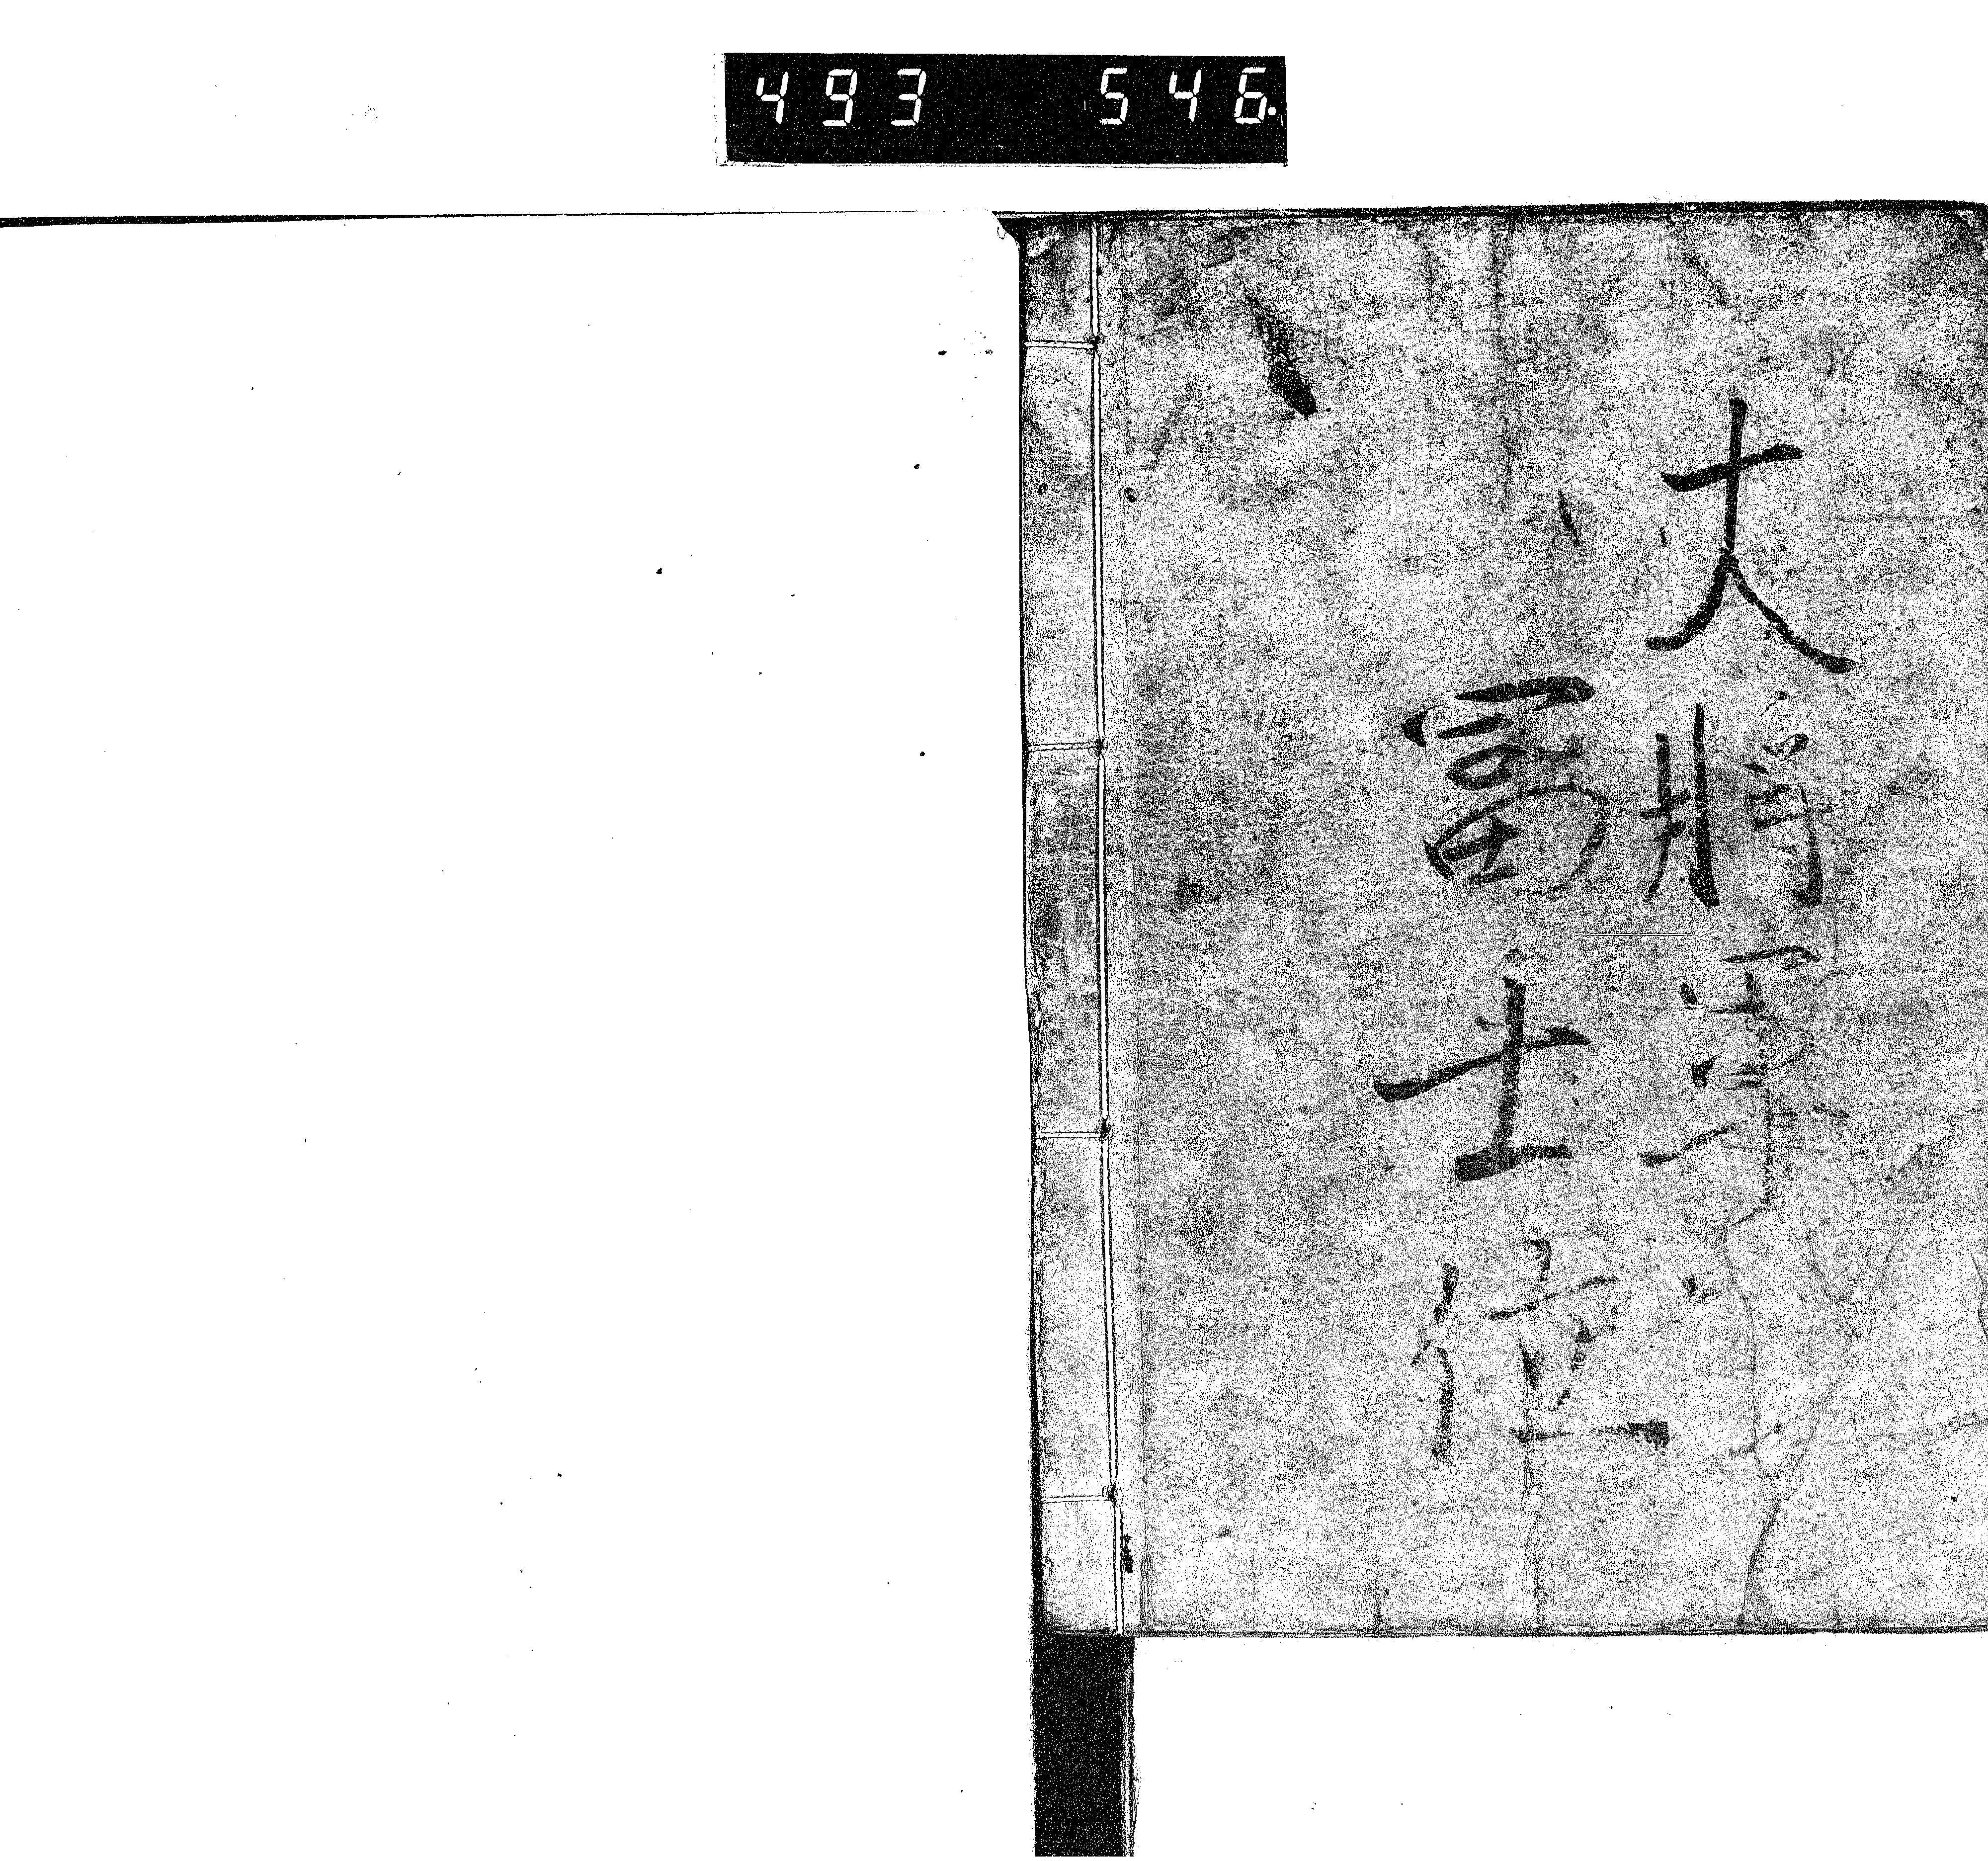 493 546.
大將軍
冨士位